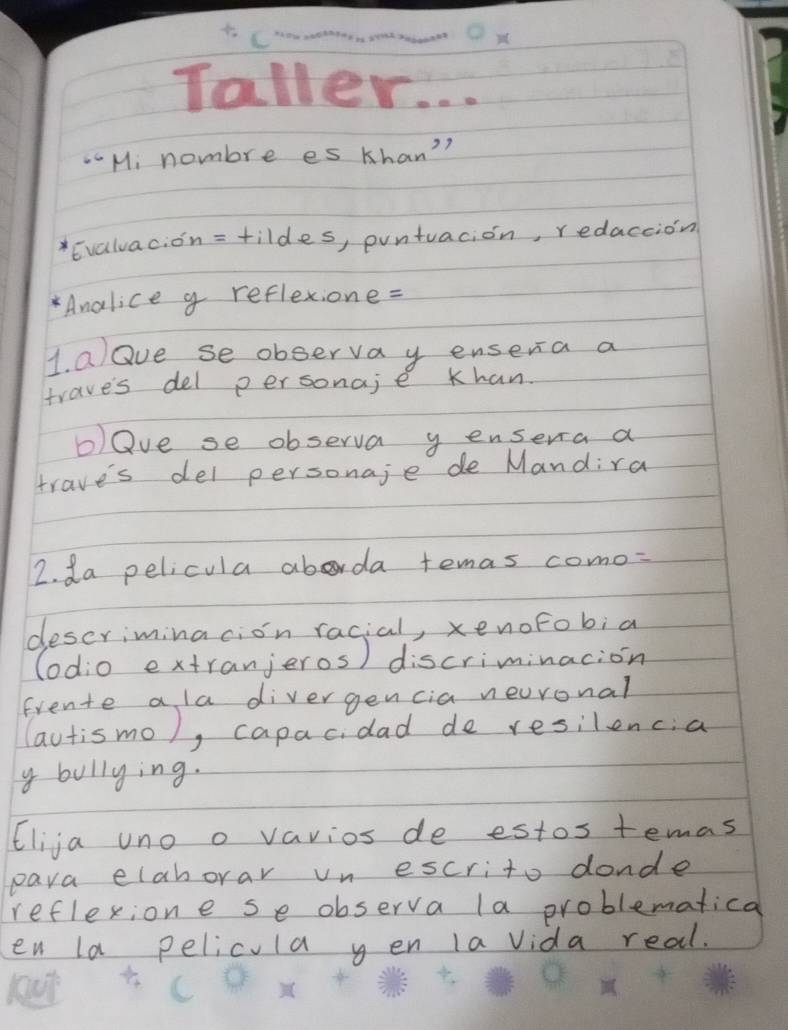 Taller...
"Mi nombre es Khan"
*Evaluación = tildes, puntuación, redacción
*Analice y reflexione=
1. a) Que se observa y enseña a
través del personaje Khan.
b) Que se observa y enseña a
través del personaje de Mandira
2. La pelicula aborda temas como=
descriminación racial, xenofobia
(odio extranjeros) discriminación
frente a la divergencia neuronal
(autismo), capacidad de resilencia
y bullying.
Elija uno o varios de estos temas
para elaborar un escrito donde
reflexione se observa la problematica
en la pelicula y en la vida real.